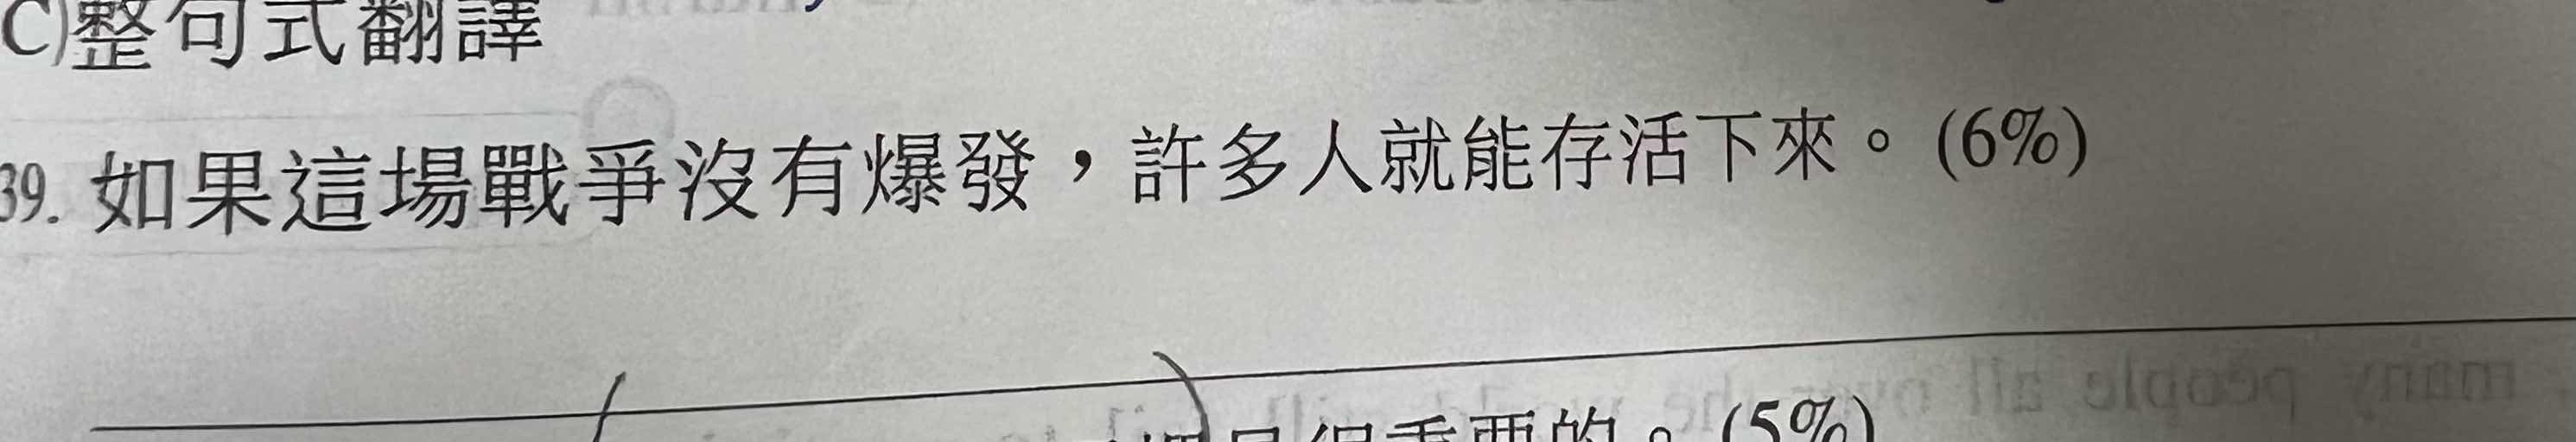 C)整句式翻譯
39. 如果這場戰爭沒有爆發，許多人就能存活下來。(6%)
是很重要的。(5%)